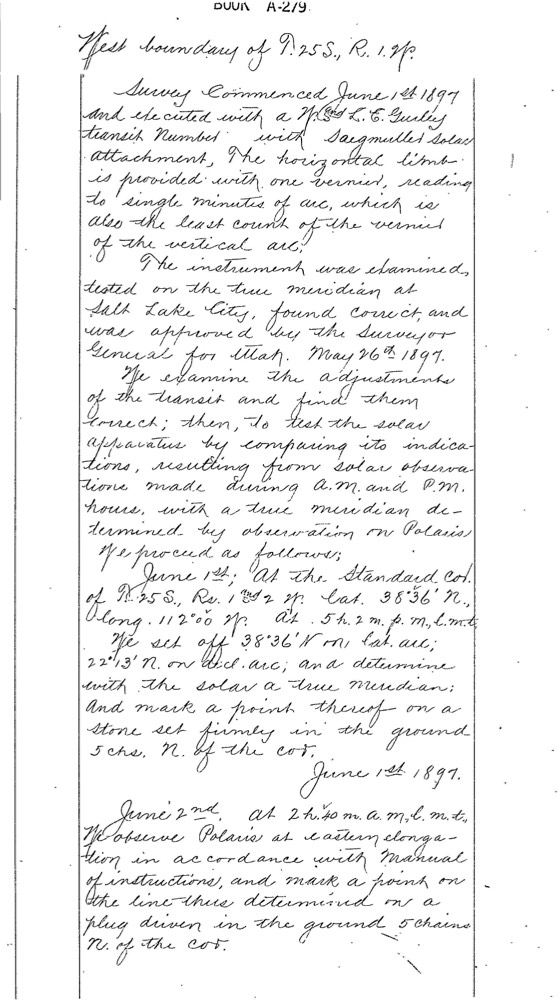 BOOK A-279
West boundary of T. 25 S., R. 1. W.
Survey Commenced June 1st 1897
and executed with a W. & L. E. Gurley
transit Number with Saegmuller solar
attachment, The horizontal limb
is provided with one vernier, reading
to single minutes of arc, which is
also the least count of the vernier
of the vertical arc;
The instrument was examined,
tested on the true meridian at
Salt Lake City, found correct, and
was approved by the Surveyor
General for Utah. May 26th 1897.
We examine the adjustments
of the transit and find them
correct; then, to test the solar
apparatus by comparing its indica-
tions, resulting from solar observa-
tions made during A.M. and P.M.
hours, with a true meridian de-
termined by observation on Polaris
We proceed as follows;
June 1st; At the Standard cor.
of T. 25 S., Rs. 1 and 2 W. Lat. 38°36' N.,
long. 112°00' W. At 5 h. 2 m. p. m., l. m. t.
We set off 38°36' N on lat. arc;
22°13' N. on decl. arc; and determine
with the solar a true meridian;
and mark a point thereof on a
stone set firmly in the ground
5 chs. N. of the cor.
June 1st 1897.
June 2nd, at 2 h. 40 m. a. m., l. m. t.,
We observe Polaris at eastern elonga-
tion in accordance with Manual
of instructions, and mark a point on
the line thus determined on a
plug driven in the ground 5 chains
N. of the cor.